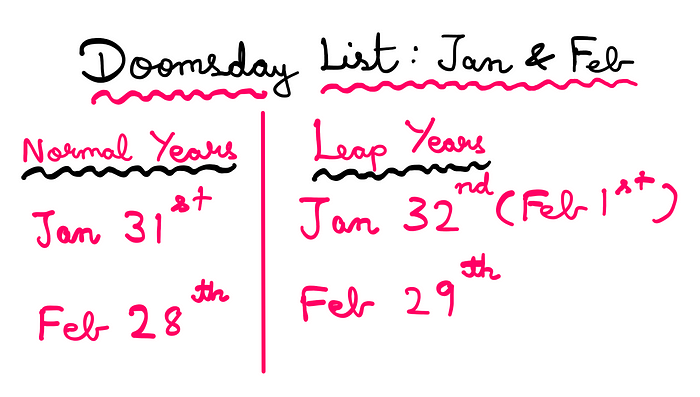 Doomsday List: Jan & Feb
Normal Years
Jan 31st
Feb 28th
Leap Years
Jan 32nd (Feb 1st)
Feb 29th